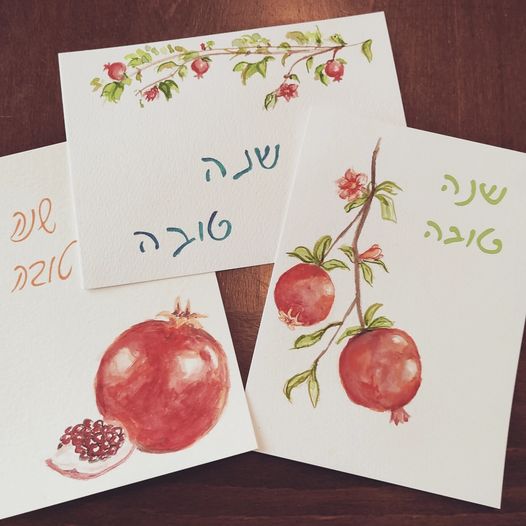 שנה
טובה
שנה
טובה
שנה
טובה